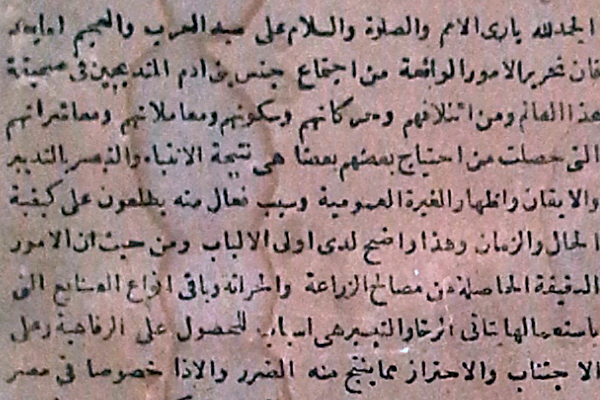 الحمد لله بارى الامم والصلوة والسلام على سيد العرب والعجم اما بعد
فان تحرير الامور الواقعة من اجتماع جنس بنى ادم المتدبجين فى صحيفة
هذا العالم ومن ائتلافهم وحركاتهم وسكونهم ومعاملاتهم ومعاشراتهم
التى حصلت من احتياج بعضهم بعضا هى نتيجة الانتباه والتبصر بالتدبير
والايقان واظهار الغيرة العمومية وسبب فعال منه يطلعون على كيفية
الحال والزمان وهذا واضح لدى اولى الالباب ومن حيث ان الامور
الدقيقة الحاصلة من مصالح الزراعة والحراثة وباقى انواع الصنايع التى
باستعمالها يتاتى الرخا والتيسير هى اسباب للحصول على الرفاهية وعلى
الاجتناب والاحتراز مما ينتج منه الضرر والاذا خصوصا فى مصر